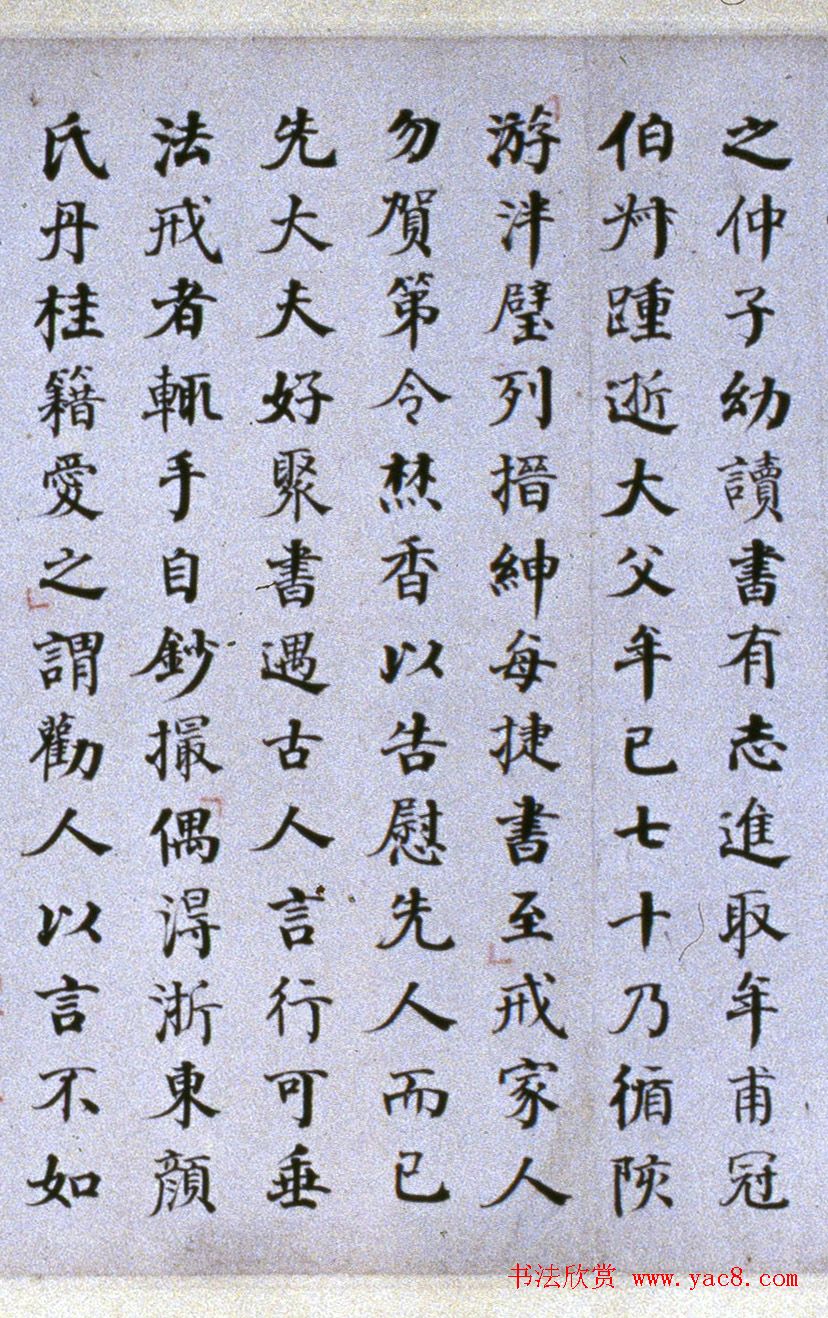 之仲子幼讀書有志進取年甫冠
伯升踵逝大父年已七十乃循陔
游泮璧列搢紳每捷書至戒家人
勿賀第令焚香以告慰先人而已
先大夫好聚書遇古人言行可垂
法戒者輒手自鈔撮偶淂浙東顔
氏丹桂籍愛之謂勸人以言不如
书法欣赏 www.yac8.com